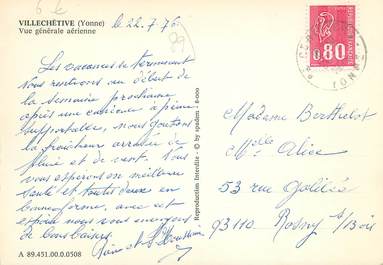 6 €
VILLECHÉTIVE (Yonne)
Vue générale aérienne
le 22.7.76
89
0,80
YONNE
Les vacances se terminent
nous rentrons au début de
la semaine prochaine
après une canicule à peine
supportable, nous goûtons
la fraîcheur arrivée de
pluie et de vent. Nous
vous espérons en meilleure
santé et toutes deux en
bonne forme, avec cet
espoir nous vous envoyons
de bons baisers
Reproduction interdite - © by spadem - 6-000
Madame Berthelot
Melle Alice
53 rue Galilée
93110 Rosny s/Bois
A 89.451.00.0.0508